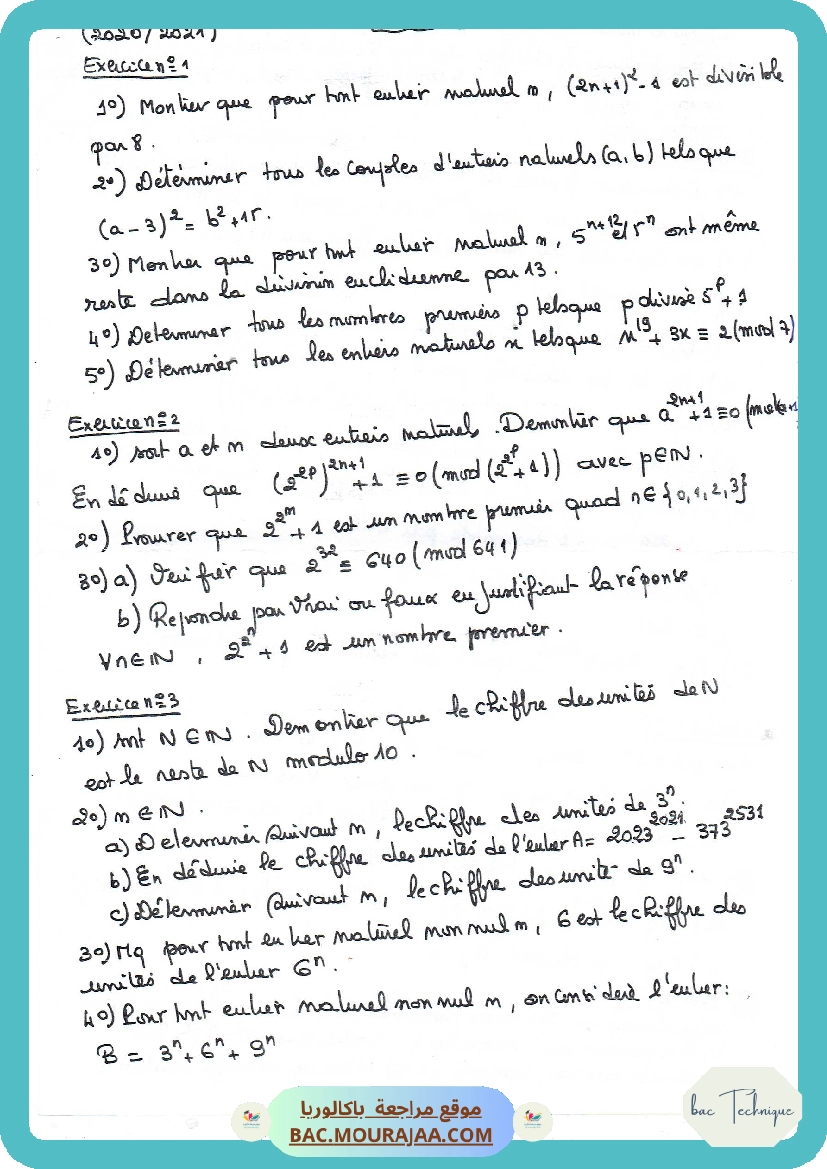 (2020/2021)
Exercice n°1
1°) Montrer que pour tout entier naturel n, (2n+1)² - 1 est divisible
par 8.
2°) Déterminer tous les couples d'entiers naturels (a, b) tels que
(a - 3)² = b² + 15.
3°) Montrer que pour tout entier naturel n, 5ⁿ⁺¹² et 5ⁿ ont même
reste dans la division euclidienne par 13.
4°) Determiner tous les nombres premiers p tels que p divise 5ᵖ + 1
5°) Déterminer tous les entiers naturels x tels que x¹⁹ + 3x ≡ 2 (mod 7)
Exercice n°2
1°) soit a et n deux entiers naturels. Demontrer que a²ⁿ⁺¹ + 1 ≡ 0 (mod a+1
En déduire que (2^2^p)^2n+1 + 1 ≡ 0 (mod (2^2^p + 1)) avec p ∈ IN.
2°) Prouver que 2^2^n + 1 est un nombre premier quad n ∈ {0, 1, 2, 3}
3°) a) Verifier que 2³² ≡ 640 (mod 641)
b) Repondre par Vrai ou faux en justifiant la réponse
∀n ∈ IN, 2^2^n + 1 est un nombre premier.
Exercice n°3
1°) Soit N ∈ IN. Demontrer que le chiffre des unités de N
est le reste de N modulo 10.
2°) n ∈ IN.
a) Determiner suivant n, le chiffre des unités de 3ⁿ.
b) En déduire le chiffre des unités de l'entier A = 2023²⁰²¹ - 373²⁵³¹
c) Déterminer suivant n, le chiffre des unité de 9ⁿ.
3°) Mq pour tout entier naturel non nul n, 6 est le chiffre des
unités de l'entier 6ⁿ.
4°) Pour tout entier naturel non nul n, on considère l'entier:
B = 3ⁿ + 6ⁿ + 9ⁿ
موقع مراجعة باكالوريا
BAC.MOURAJAA.COM
bac Technique